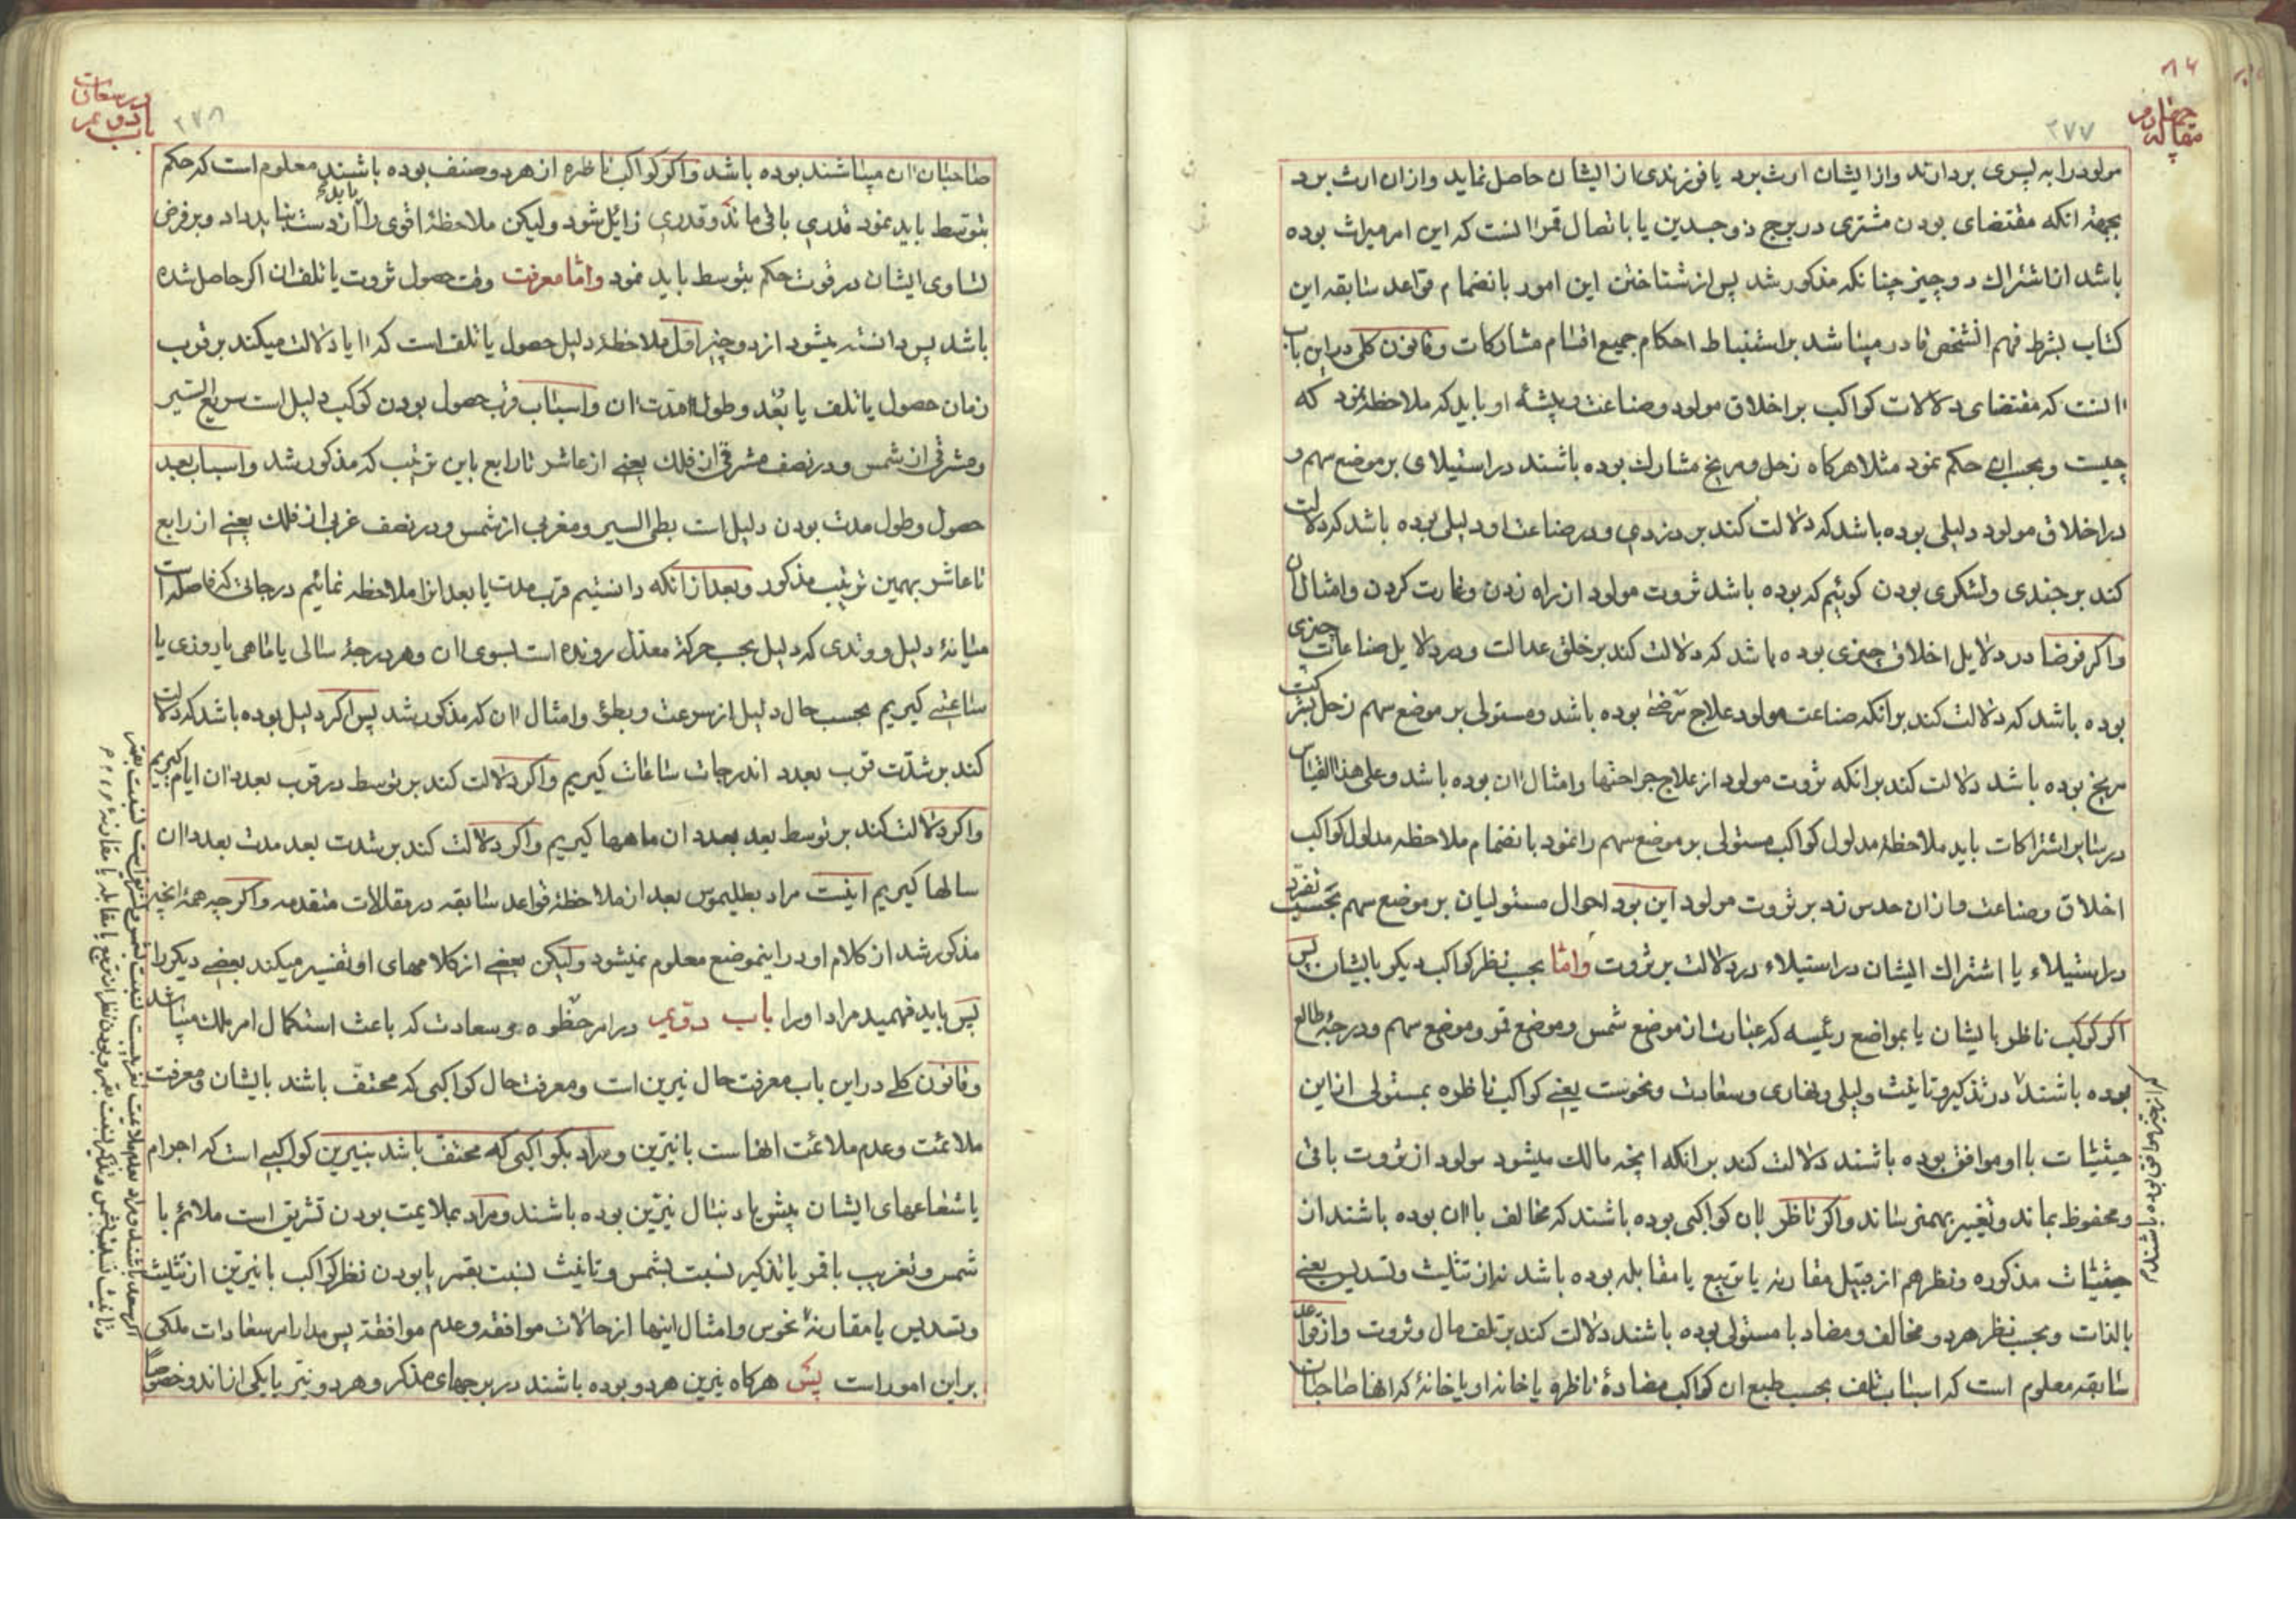 مقاله چهارم
۲۷۷
مولود را به پسری بردارند و از ایشان ارث برد یا فرزندی از ایشان حاصل نماید و از ان ارث برد
بجهة انکه مقتضای بودن مشتری در برج ذو جسدین یا باتصال قمر انست که این امر میراث بوده
باشد از اشتراك دو چیز چنانکه مذکور شد پس از شناختن این امور بانضمام قواعد سابقه این
کتاب بشرط فهم الشخص قادر میباشد بر استنباط احکام جمیع اقسام مشارکات و قانون کلی در این باب
انست که مقتضای دلالات کواکب بر اخلاق مولود و صناعت و پیشهٔ او باید که ملاحظه نمود که
چیست و بحسب ان حکم نمود مثلا هرکاه زحل و مریخ مشارك بوده باشند در استیلای بر موضع سهم و
در اخلاق مولود دلیلی بوده باشد که دلالت کند بر دزدی و در صناعت او دلیلی بوده باشد که دلالت
کند بر جندی و لشکری بودن کوئیم که بوده باشد ثروت مولود از راه زدن و غارت کردن و امثال ان
و اکر فرضا در دلایل اخلاق چیزی بوده باشد که دلالت کند بر خلق عدالت و در دلایل صناعات چیزی
بوده باشد که دلالت کند بر انکه صناعت مولود علاج مرضی بوده باشد و مستولی بر موضع سهم زحل بشرکت
مریخ بوده باشد دلالت کند بر انکه ثروت مولود از علاج جراحتها و امثال ان بوده باشد و علی هذا القیاس
در سایر اشتراکات باید ملاحظهٔ مدلول کواکب مستولی بر موضع سهم را نمود بانضمام ملاحظه مدلول کواکب
اخلاق و صناعت و از ان حدس زد بر ثروت مولود این بود احوال مستولیان بر موضع سهم بحسب تفرد
در استیلاء یا اشتراك ایشان در استیلاء در دلالت بر ثروت و امّا بحسب نظر کواکب دیکر بایشان پس
اکر کوکب ناظر بایشان یا بمواضع رئیسه که عبارت از موضع شمس و موضع قمر و موضع سهم و درجهٔ طالع
بوده باشند در تذکیر و تانیث و لیلی و نهاری و سعادت و نحوست یعنی کواکب ناظره بمستولی از این
حیثیات با او موافق بوده باشند دلالت کند بر انکه انچه مالك میشود مولود از ثروت باقی
و محفوظ بماند و تغییر بهم نرساند و اکر ناظر بان کواکبی بوده باشند که مخالف با ان بوده باشند از
حیثیات مذکوره و نظر هم از قبیل مقارنه یا تربیع یا مقابله بوده باشد نه از تثلیث و تسدیس یعنی
بالذات و بحسب نظر هر دو مخالف و مضاد با مستولی بوده باشند دلالت کند بر تلف مال و ثروت و از قواعد
سابقه معلوم است که اسباب تلف بحسب طبع ان کواکب مضادهٔ ناظره یا خانه او یا خانهٔ که انها صاحبان
در سعادت
باب دویم
۲۷۸
صاحبان ان میباشند بوده باشد و اکر کواکب ناظره از هر دو صنف بوده باشند معلوم است که حکم
بتوسط باید نمود قدری باقی ماند و قدری زایل شود ولیکن ملاحظهٔ اقوی را از دست نباید داد و بر فرض
تساوی ایشان در قوت حکم بتوسط باید نمود و امّا معرفت وقت حصول ثروت یا تلف ان اکر حاصل شده
باشد پس دانسته میشود از دو چیز اول ملاحظهٔ دلیل حصول یا تلف است که ایا دلالت میکند بر قرب
زمان حصول یا تلف یا بُعد و طول مدت ان و اسباب قرب حصول بودن کوکب دلیل است سریع السّیر
و مشرقی از شمس و در نصف مشرقی از فلك یعنی از عاشر تا رابع باین ترتیب که مذکور شد و اسباب بعد
حصول و طول مدت بودن دلیل است بطی السیر و مغربی از شمس و در نصف غربی از فلك یعنی از رابع
تا عاشر بهمین ترتیب مذکور و بعد از انکه دانستیم قرب مدت یا بعد انرا ملاحظه نمائیم درجاتی که فاصله است
میانهٔ دلیل و وتدی که دلیل بحسب حرکة معدّل رونده است بسوی ان و هر درجهٔ سالی یا ماهی یا روزی یا
ساعتی کیریم بحسب حال دلیل از سرعت و بطؤ و امثال ان که مذکور شد پس اکر دلیل بوده باشد که دلالت
کند بر شدّت قرب بعدد ان درجات ساعات کیریم و اکر دلالت کند بر توسط در قرب بعدد ان ایام کیریم
و اکر دلالت کند بر توسط بعد بعدد ان ماهها کیریم و اکر دلالت کند بر شدت بعد مدت بعدد ان
سالها کیریم اینست مراد بطلیموس بعد از ملاحظهٔ قواعد سابقه در مقالات متقدمه و اکرچه همهٔ انچه
مذکور شد از کلام او در اینموضع معلوم نمیشود ولیکن بعضی از کلامهای او تفسیر میکند بعضی دیکر را
پس باید فهمید مراد او را باب دویم در امر حظّوه و سعادت که باعث استکمال امر ملك میباشد
و قانون کلی در این باب معرفت حال نیرین است و معرفت حال کواکبی که محتفّ باشد بایشان و معرفت
ملائمت و عدم ملائمت انهاست با نیّرین و مراد بکواکبی که محتفّ باشد بنیرین کواکبی است که اجرام
یا شعاعهای ایشان پیش یا دنبال نیّرین بوده باشند و مراد بملایمت بودن تشریق است ملائم با
شمس و تغریب با قمر یا تذکیر نسبت بشمس و تانیث نسبت بقمر یا بودن نظر کواکب با نیّرین از تثلیث
و تسدیس یا مقارنهٔ نحوس و امثال اینها از حالات موافقه و عدم موافقة پس مدار امر سعادات ملکی
بر این امور است پس هرکاه نیرین هر دو بوده باشند در برجهای مذکر و هر دو نیّر یا یکی از اند و خصوصاً